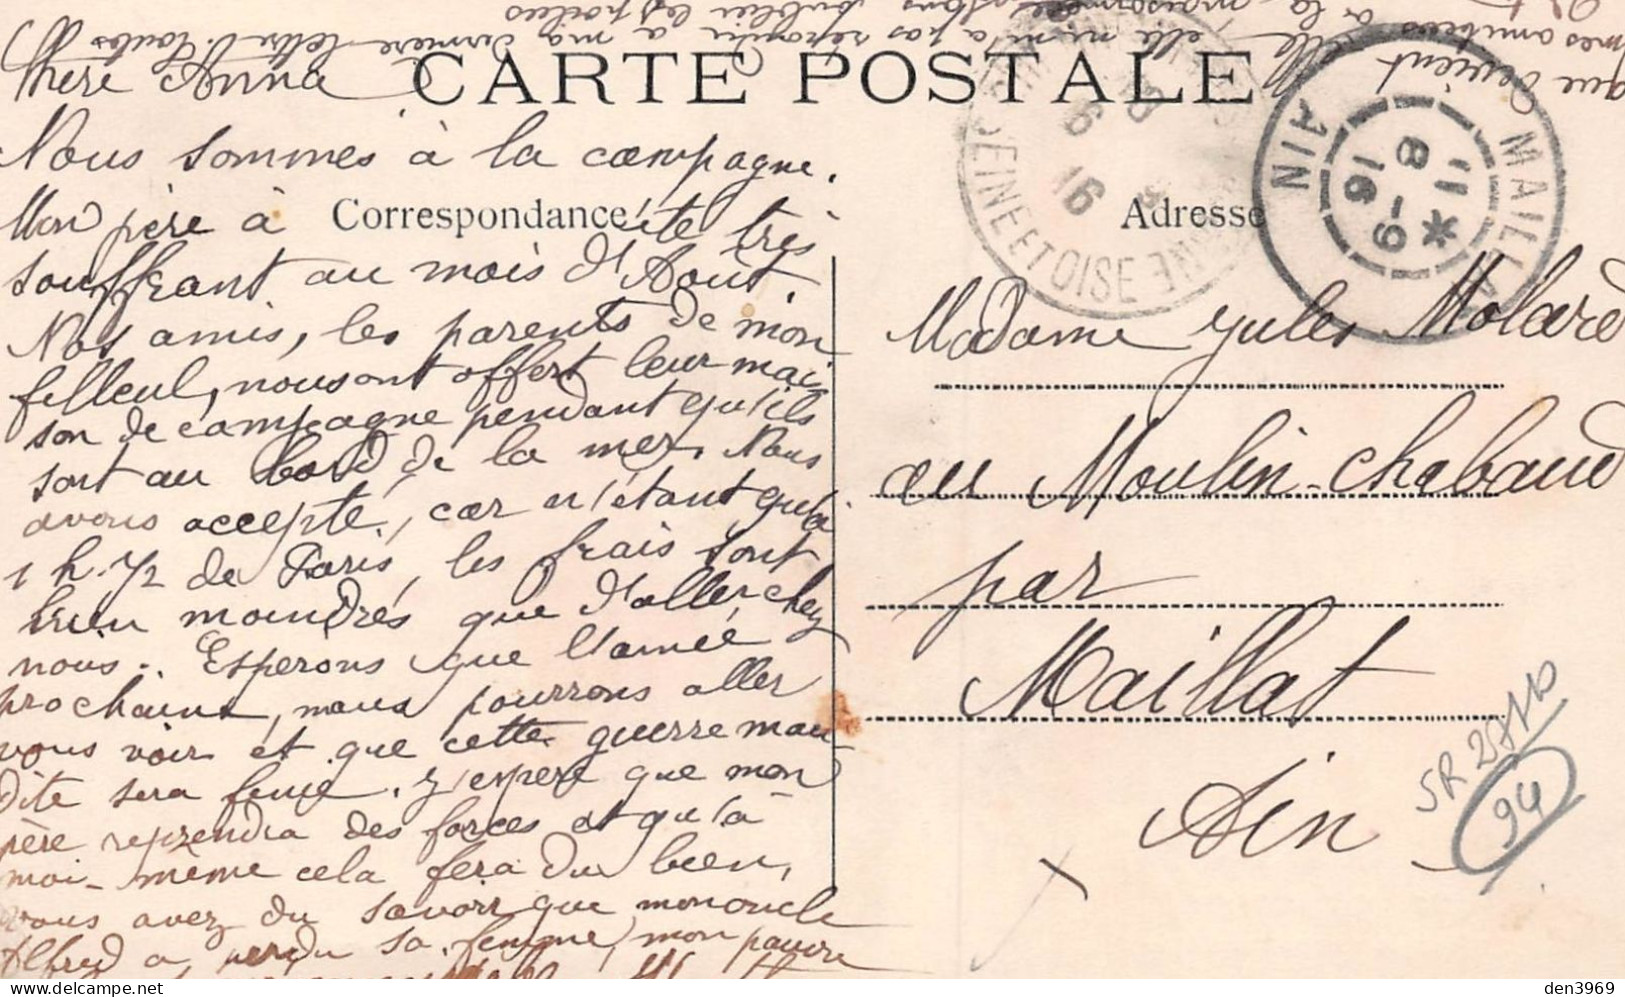 que devient elle, elle ne m'a pas répondu à ma dernière lettre.
mes amitiés à la
les poilus
Chère Anna
CARTE POSTALE
Nous sommes à la campagne.
Mon père à été très
Correspondance
Adresse
souffrant au mois d'Août.
Nos amis, les parents de mon
filleul, nous ont offert leur mai
son de campagne pendant qu'ils
sont au bord de la mer. Nous
avons accepté, car n'étant qu'à
1 h. 1/2 de Paris, les frais sont
bien moindres que d'aller chez
nous. Esperons que l'année
prochaine, nous pourrons aller
vous voir et que cette guerre mau
dite sera finie. J'espère que mon
père reprendra des forces et qu'à
moi-même cela fera du bien,
vous avez du savoir que mon oncle
Alfred a perdu sa femme, mon pauvre
SEINE ET OISE
16
MAILLAT
AIN
11 * 8 -9 16
Madame Jules Molard
au Moulin-Chabaud
par
Maillat
Ain
SR 2571D
94
den3969